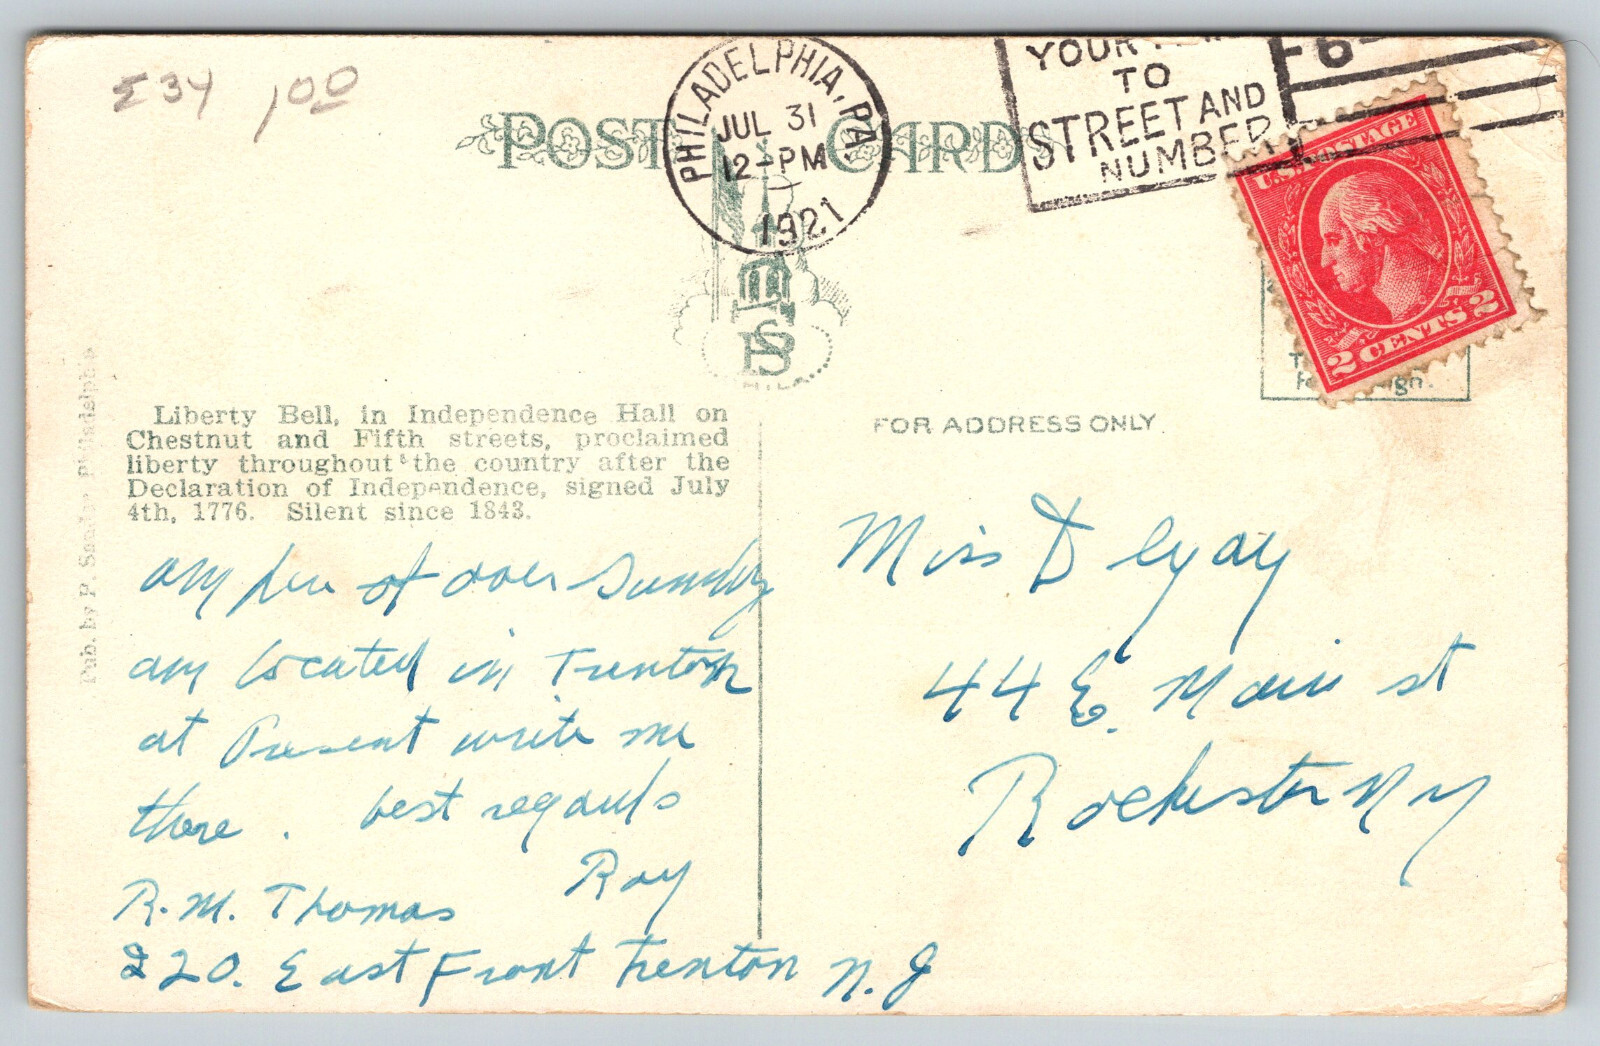 E34 1.00
POST CARD
PHILADELPHIA, PA.
JUL 31
12-PM
1921
YOUR
TO
STREET AND
NUMBER
U.S. POSTAGE
2 CENTS 2
PS
Liberty Bell, in Independence Hall on
Chestnut and Fifth streets, proclaimed
liberty throughout the country after the
Declaration of Independence, signed July
4th, 1776. Silent since 1843.
Pub. by P. Sander Philadelphia
FOR ADDRESS ONLY
am here of over Sunday
am located in Trenton
at Present write me
there. best regards
Ray
R. M. Thomas
220. East Front Trenton N. J
Miss D
44 E. Main st
Rochester N y